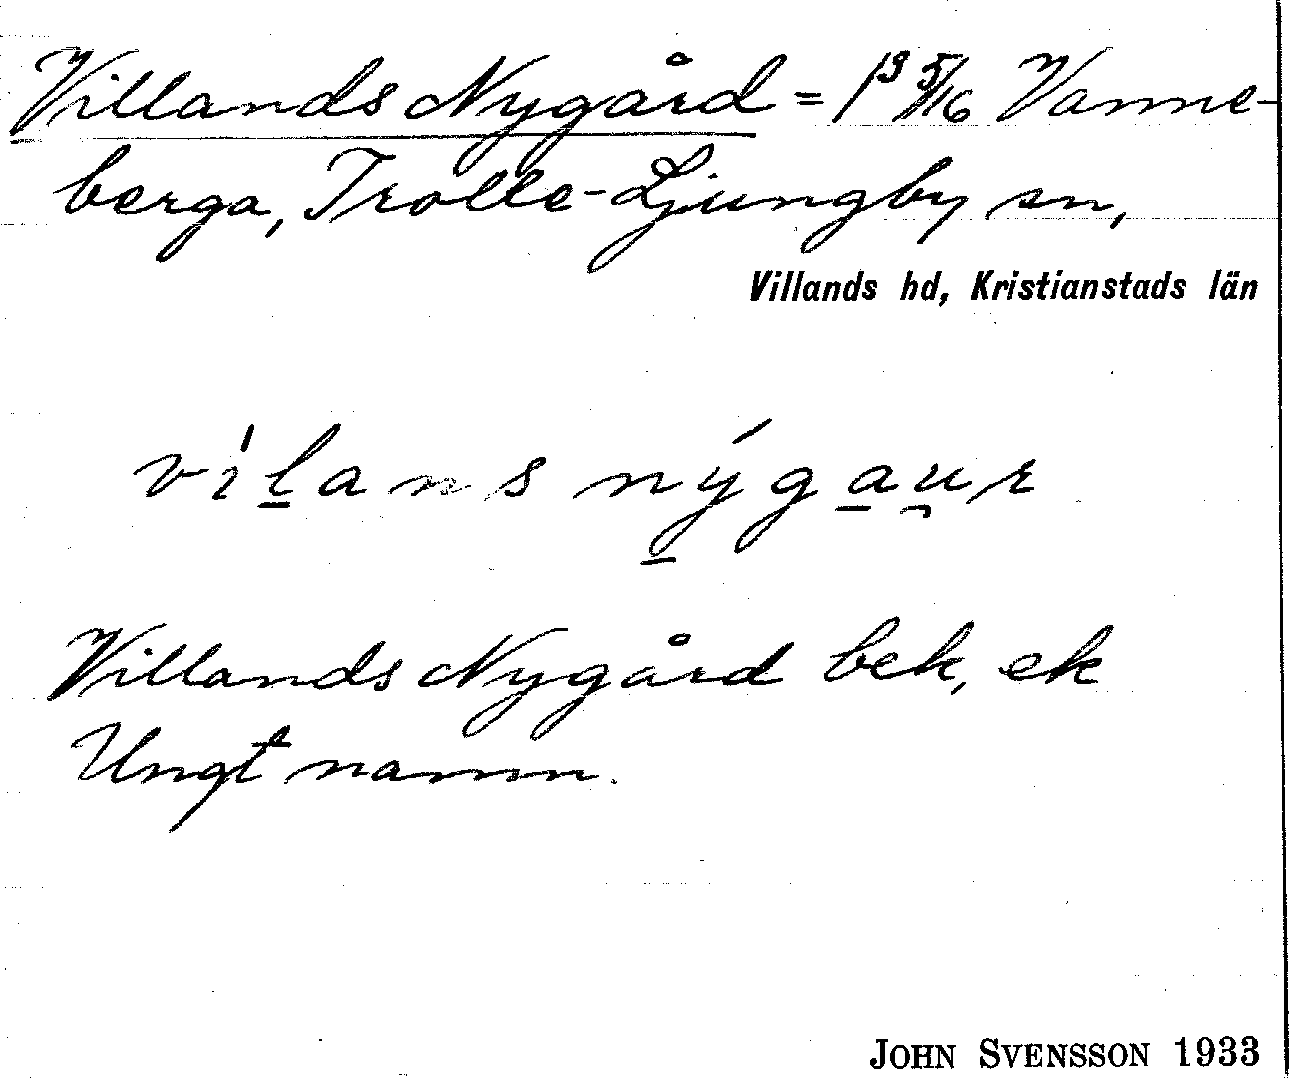 Villands Nygård = 1³ 5/16 Vanne-
berga, Trolle-Ljungby sn,
Villands hd, Kristianstads län
vilans nýgau̯r
Villands Nygård bek, ek
Ungt namn.
JOHN SVENSSON 1933